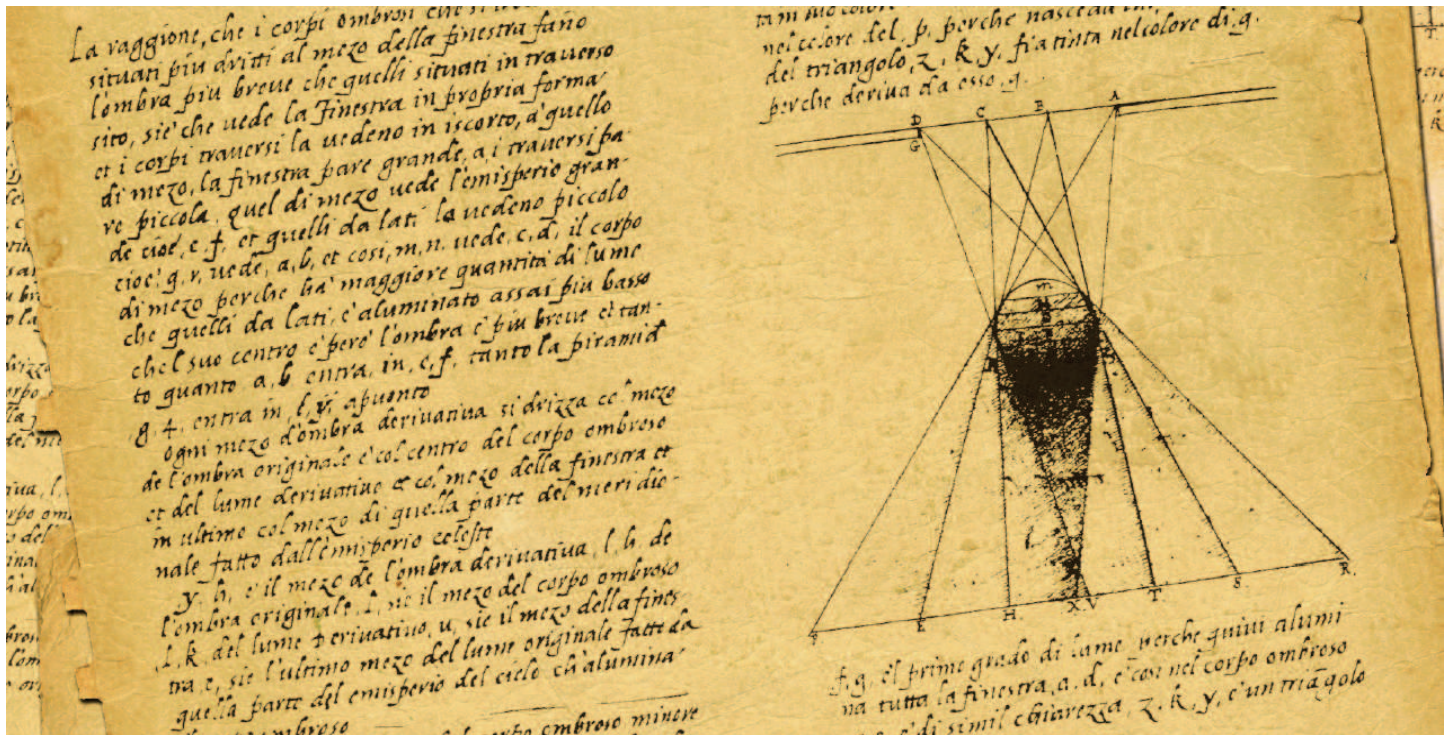 La raggione, che i corpi ombrosi che si
situati piu dritti al mezo della finestra fano
l'ombra piu breve che quelli situati in traverso
sito, sie' che vede la finestra in propria forma
et i corpi traversi la vedeno in iscorto, a' quello
di mezo, la finestra pare grande, a, i traversi pa-
re piccola. quel di mezo vede l'emisperio gran-
de cioe', e, f, et quelli da lati la vedeno piccolo
cioe' q, r, vede, a, b, et cosi, m, n, vede, c, d, il corpo
di mezo perche ha' maggiore quantita di lume
che quelli da lati, e' aluminato assai piu basso
che l suo centro e pero' l'ombra e' piu breve et tan-
to quanto a, b entra, in, e, f, tanto la piramid
g. 4, entra in, l, y, apuonto
ogni mezo d'ombra derivativa si drizza co'l mezo
de l'ombra originale e' col centro del corpo ombroso
et del lume derivativo et col mezo della finestra et
in ultimo col mezo di quella parte del meridio-
nale fatto dall'emisperio celeste
y. h, e' il mezo de l'ombra derivativa, l. h. de
l'ombra originale. l, ne il mezo del corpo ombroso
l. k, del lume derivativo, u, sie il mezo della fines-
tra, e, sie l'ultimo mezo del lume originale fatto da
quella parte del emisperio del cielo ch'alumina
ombroso
corpo ombroso minore
nel colore del. p. perche nasce da
del triangolo, z. k. y. fia tinta nel colore di. q.
perche deriva da esso. q.
D C B A
G
m
F E H X V T S R
f. g. el primo grado di lume perche quivi alumi
na tutta la finestra, a. d, e' cosi nel corpo ombroso
e' di simil chiarezza, z. k. y, e' un triãgolo